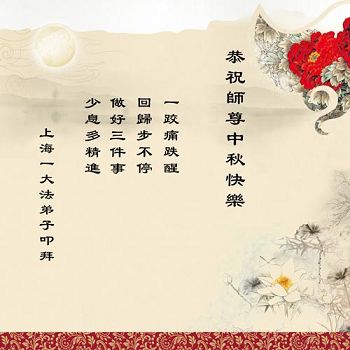 恭祝師尊中秋快樂
一跤痛跌醒
回歸步不停
做好三件事
少息多精進
上海一大法弟子叩拜